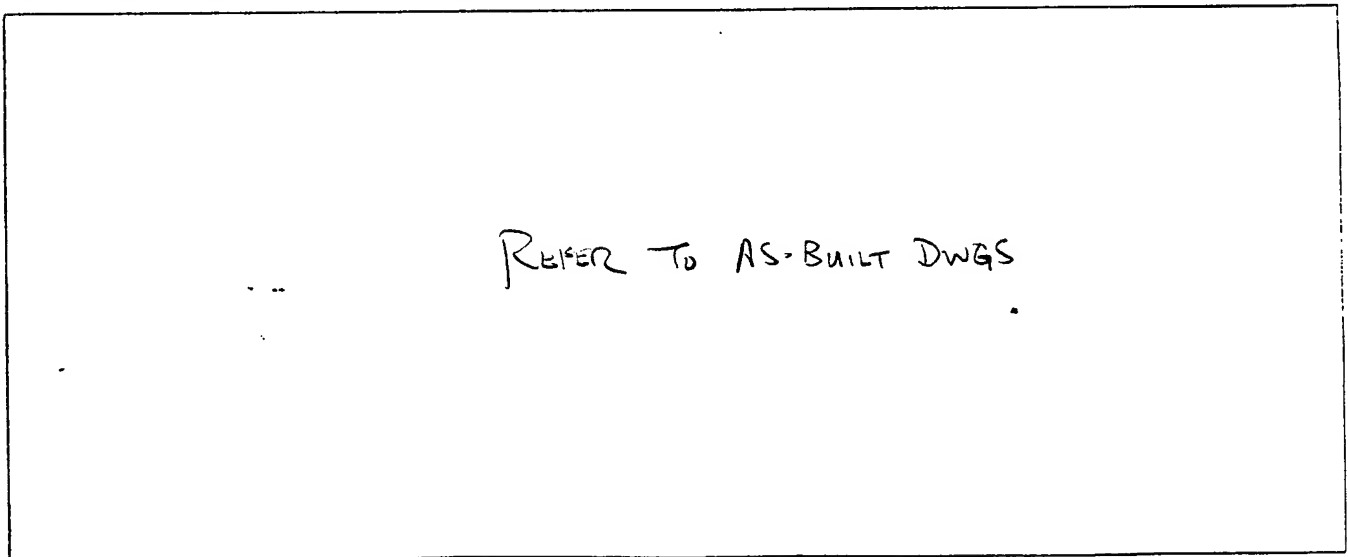 REFER TO AS-BUILT DWGS